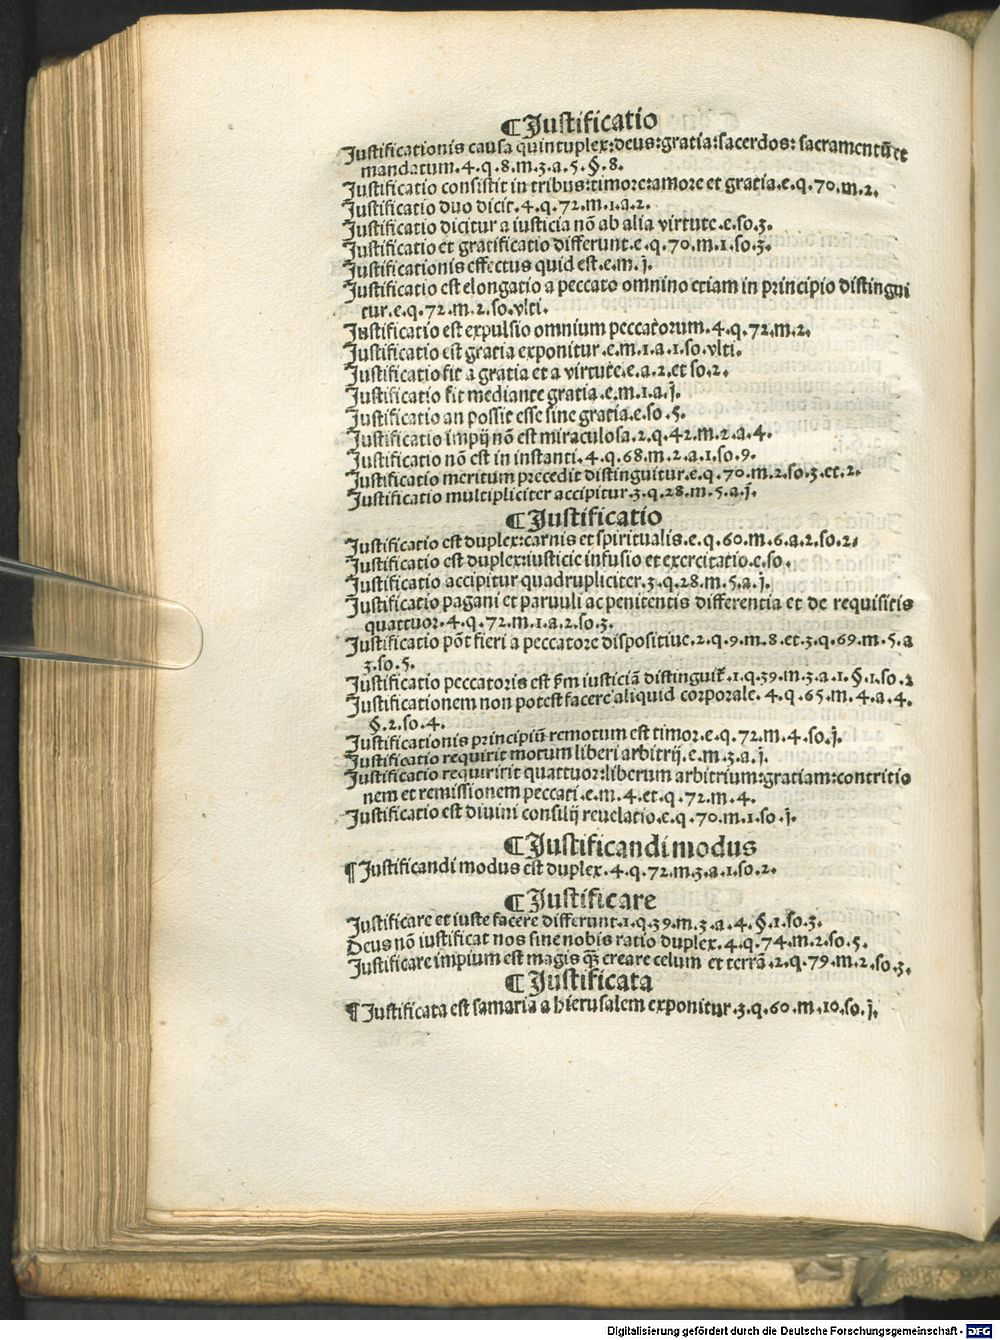 ¶Justificatio
Justificationis causa quintuplex:deus:gratia:sacerdos: sacramentū et
mandatum.4.q.8.m.3.a.5.§.8.
Justificatio consistit in tribus:timore:amore et gratia.e.q.70.m.2.
Justificatio duo dicit.4.q.72.m.1.a.2.
Justificatio dicitur a iusticia nō ab alia virtute.e.so.3.
Justificatio et gratificatio differunt.e.q.70.m.1.so.3.
Justificationis effectus quid est.e.m.j.
Justificatio est elongatio a peccato omnino etiam in principio distingui
tur.e.q.72.m.2.so.vlti.
Justificatio est expulsio omnium peccatorum.4.q.72.m.2.
Justificatio est gratia exponitur.e.m.1.a.1.so.vlti.
Justificatio fit a gratia et a virtute.e.a.2.et so.2.
Justificatio fit mediante gratia.e.m.1.a.j.
Justificatio an possit esse sine gratia.e.so.5.
Justificatio impij nō est miraculosa.2.q.42.m.2.a.4.
Justificatio nō est in instanti.4.q.68.m.2.a.1.so.9.
Justificatio meritum precedit distinguitur.e.q.70.m.2.so.3.et.2.
Justificatio multipliciter accipitur.3.q.28.m.5.a.j.
¶Justificatio
Justificatio est duplex:carnis et spiritualis.e.q.60.m.6.a.2.so.2.
Justificatio est duplex:iusticie infusio et exercitatio.e.so.
Justificatio accipitur quadrupliciter.3.q.28.m.5.a.j.
Justificatio pagani et paruuli ac penitentis differentia et de requisitis
quattuor.4.q.72.m.1.a.2.so.3.
Justificatio pōt fieri a peccatore dispositiue.2.q.9.m.8.et.3.q.69.m.5.a
3.so.5.
Justificatio peccatoris est sm iusticiā distinguit.1.q.39.m.3.a.1.§.1.so.2
Justificationem non potest facere aliquid corporale.4.q.65.m.4.a.4.
§.2.so.4.
Justificationis principiū remotum est timor.e.q.72.m.4.so.j.
Justificatio requirit motum liberi arbitrij.e.m.3.a.j.
Justificatio requiririt quattuor:liberum arbitrium:gratiam:contritio
nem et remissionem peccati.e.m.4.et.q.72.m.4.
Justificatio est diuini consilij reuelatio.e.q.70.m.1.so.j.
¶Justificandi modus
¶Justificandi modus est duplex.4.q.72.m.3.a.1.so.2.
¶Justificare
Justificare et iuste facere differunt.1.q.39.m.3.a.4.§.1.so.3.
Deus nō iustificat nos sine nobis ratio duplex.4.q.74.m.2.so.5.
Justificare impium est magis q̄ creare celum et terrā.2.q.79.m.2.so.3.
¶Justificata
¶Justificata est samaria a hierusalem exponitur.3.q.60.m.10.so.j.
Digitalisierung gefördert durch die Deutsche Forschungsgemeinschaft - DFG